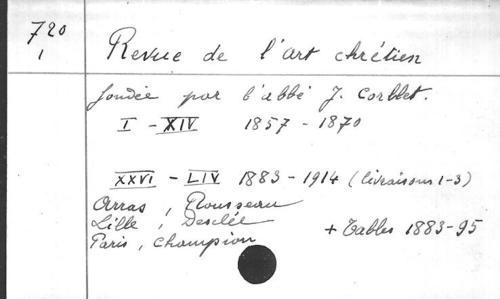 720
1
Revue de l'art chrétien
fondée par l'abbé J. Corblet.
I - XIV 1857 - 1870
XXVI - LIV 1883 - 1914 (livraisons 1-3)
Arras, Rousseau
Lille, Desclée
Paris, Champion + Tables 1883-95